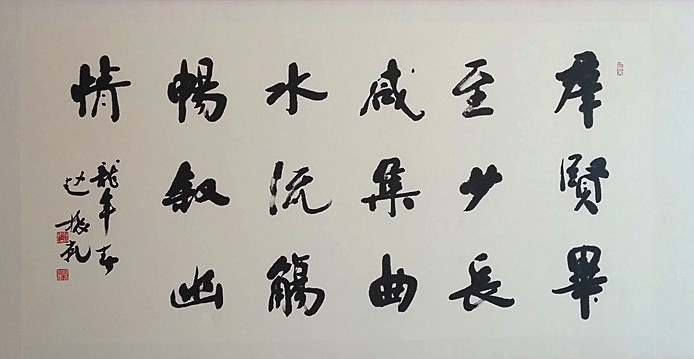 羣賢畢
至少長
咸集曲
水流觴
暢叙幽
情
龍年春
振